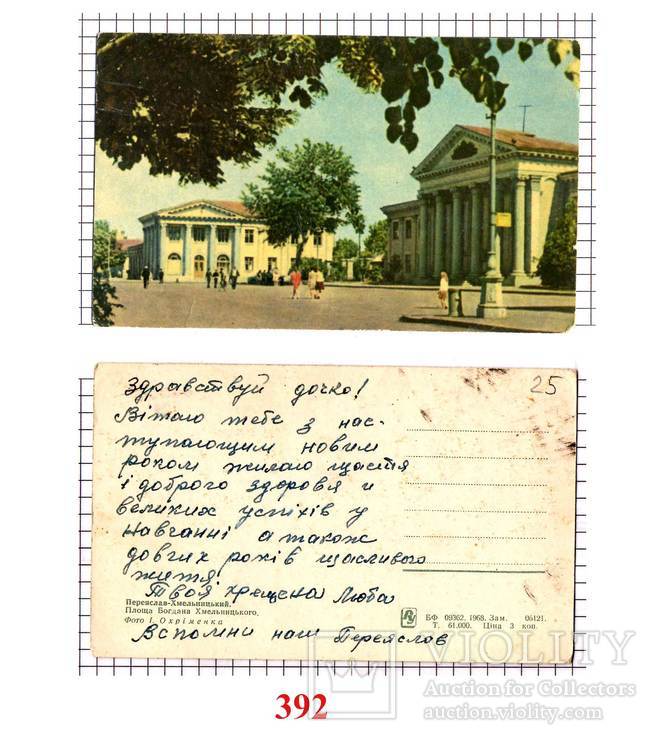 Здравствуй дочко!
25
Вітаю тебе з нас-
тупающим новим
роком жилаю щастя
і доброго здоровя и
великих успіхів у
навчанні а також
довгих років щасливого
життя
Твоя хрещена Люба
Переяслав-Хмельницький.
Площа Богдана Хмельницького.
Фото І. Охріменка
БФ 09362. 1968. Зам. 05121.
Т. 61.000. Ціна 3 коп.
Вспомни наш Переяслов
392
VIOLITY
Auction for Collectors
auction.violity.com